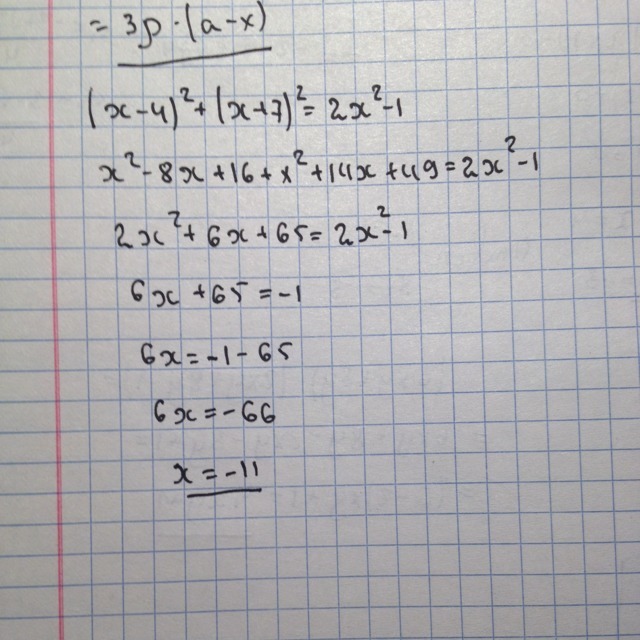 = 3p · (a - x)
(x - 4)² + (x + 7)² = 2x² - 1
x² - 8x + 16 + x² + 14x + 49 = 2x² - 1
2x² + 6x + 65 = 2x² - 1
6x + 65 = -1
6x = -1 - 65
6x = -66
x = -11